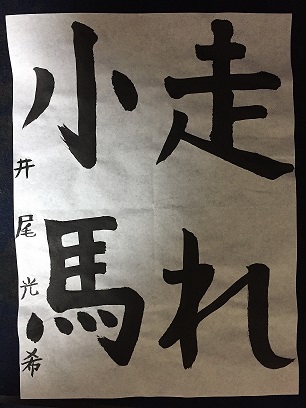 走れ
小馬
井尾光希